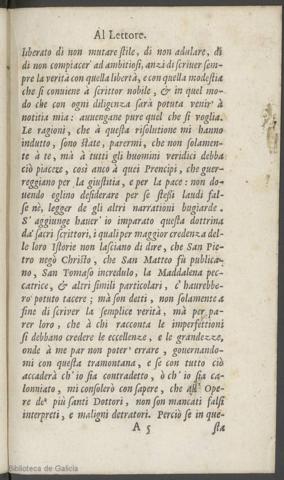 Al Lettore.
liberato di non mutare stile, di non adulare, di
di non compiacer' ad ambitiosi, anzi di scriuer sem-
pre la verità con quella libertà, e con quella modestia
che si conuiene à scrittor nobile, & in quel mo-
do che con ogni diligenza sarà potuta venir' à
notitia mia: auuengane pure quel che si voglia.
Le ragioni, che à questa risolutione mi hanno
indutto, sono state, parermi, che non solamen-
te à te, mà à tutti gli huomini veridici debba
ciò piacere, così ancò à quei Prencipi, che guer-
reggiano per la giustitia, e per la pace: non do-
uendo eglino desiderare per se stessi laudi fal-
se nè, legger de gli altri narrationi bugiarde.
S' aggiunge hauer' io imparato questa dottrina
da' sacri scrittori, i quali per maggior credenza del-
le loro Istorie non lasciano di dire, che San Pie-
tro negò Christo, che San Matteo fù publica-
no, San Tomaso incredulo, la Maddalena pec-
catrice, & altri simili particolari, c' haurebbe-
ro potuto tacere; mà son detti, non solamente a
fine di scriver la semplice verità, mà per pa-
rer loro, che à chi racconta le imperfettioni
si debbano credere le eccellenze, e le grandezze,
onde à me par non poter' errare, gouernando-
mi con questa tramontana, e se con tutto ciò
accaderà ch' io sia contradetto, ò ch' io sia ca-
lonniato, mi consolerò con sapere, che all' Ope-
re de' più santi Dottori, non son mancati falsi
interpreti, e maligni detratori. Perciò se in que-
A 5 sta
Biblioteca de Galicia